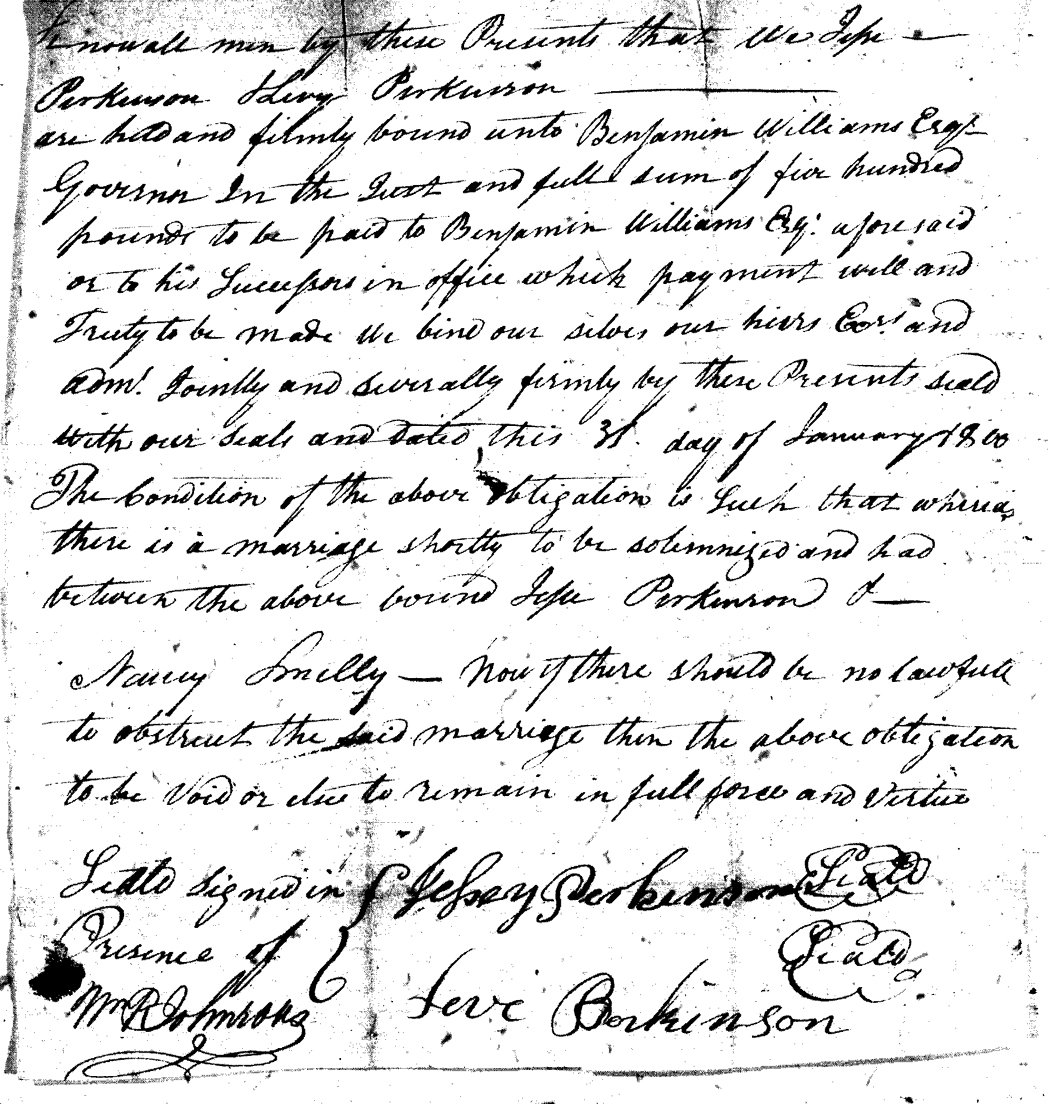 Know all men by these Presents that We Jesse —
Perkinson & Levy Perkinson —
are held and firmly bound unto Benjamin Williams Esqr
Governor In the Just and full sum of five hundred
pounds to be paid to Benjamin Williams Esqr. afore said
or to his Successors in office which payment will and
Truly to be made We bind our selves our heirs Exrs and
admr. Jointly and severally firmly by these Presents seald
with our seals and dated this 31. day of January 1800
The Condition of the above obligation is Such that whereas
there is a marriage shortly to be solemnized and had
between the above bound Jesse Perkinson & —
Nancy Smelly — Now if there should be no lawfull
to obstruct the said marriage then the above obligation
to be Void or else to remain in full force and Virtue
Seald signed in Jessey Perkinson Seald
Presence of Seald
Wm R Johnson Leve Perkinson